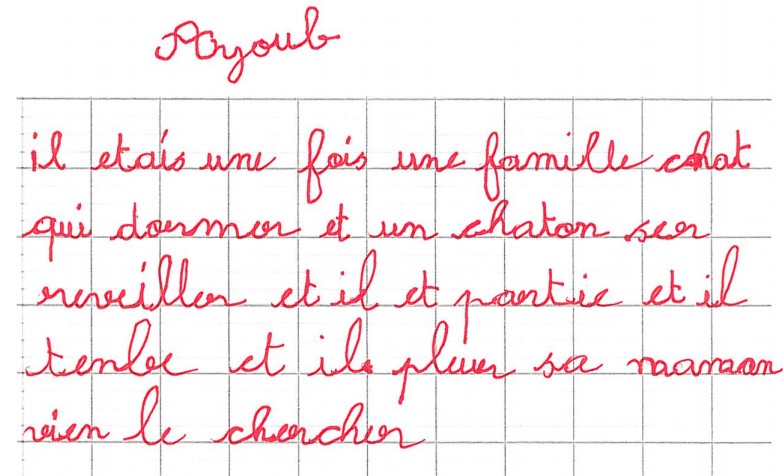 Ayoub
il etais une fois une famille chat
qui dormer et un chaton ser
reveiller et il et partie et il
tenbe et il pleuer sa maman
vien le chercher